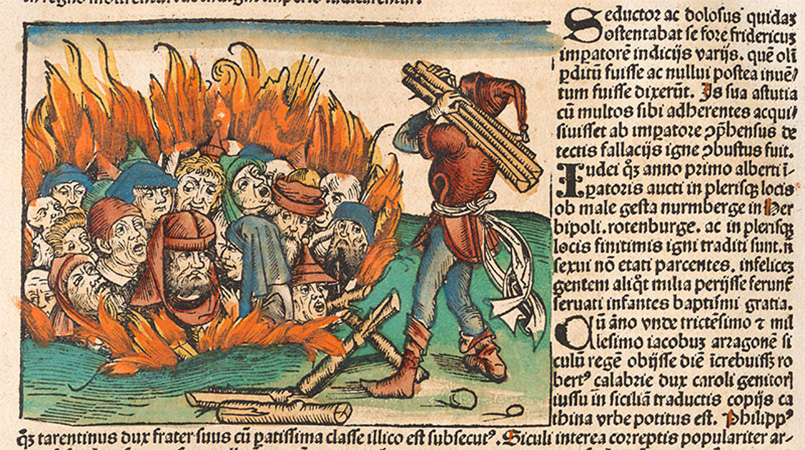 Seductor ac dolosus quidaʒ
ostentabat se fore fridericuʒ
impatorē indicijs varijs. quē oli
pditū fuisse ac nullui postea inuē⸗
tum fuisse dixerūt. Is sua astutia
cū multos sibi adherentes acqui
siuisset ab impatore ꝓphensus de
tectis fallacijs igne ꝯbustus fuit.
Iudei qʒ anno primo alberti i⸗
patoris aucti in plerisqʒ locis
ob male gesta nurmberge in Her
bipoli. rotenburge. ac in plerisqʒ
locis finitimis igni traditi sunt. n
sexui nō etati parcentes. infelicez
gentem aliqt milia perijsse ferunt
seruati infantes baptismi gratia.
Cū āno vnde trictesimo ⁊ mil
lesimo iacobus aragonē si
culū regē obijsse diē īcrebuissʒ ro
bertꝰ calabrie dux caroli genitori
iussu in siciliā traductis copijs ca
thina vrbe potitus est. Philippꝰ
qʒ tarentinus dux frater suus cū patissima classe illico est subsecutꝰ. Siculi interea correptis populariter ar⸗